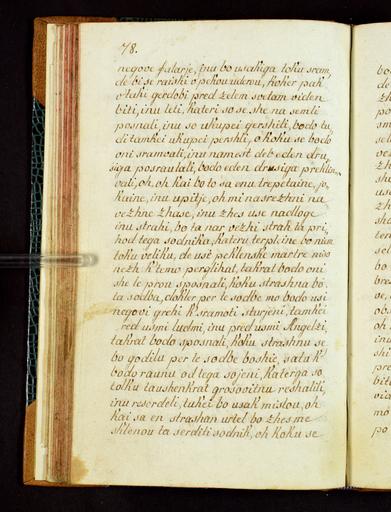 78.
negove falarje, inu bo usakiga toku sram,
de bi se raishi v pekou uderou, koker pak
v taki gerdobi pred zelem svetam viden
biti, inu leti, kateri so se she na semli
posnali, inu so ukupei gershili, bodo tu,
di tamkei ukupei pershli, o koku se bodo
oni sramvali, inu namest deb eden dru,
siga posraulali, bodo eden drusiga preklin,
vali, oh, oh kai bo to sa enu trepetaine, jo,
kaine, inu upitje, oh mi nasrezhni na
vezhne zhase, inu zhes use nadloge
inu strahi, bo ta nar vezhi strah ta pri,
hod tega sodnika, kateru terpleine bo nium
toku veliku, de use peklenske martre niso
nezh k' temu perglihat, takrat bodo oni
she le prou sposnali, koku strashna bo
ta sodba, dokler per le sodbe mo bodo usi
negovi grehi k' sramoti sturjeni, tamkei
pred usmi ludmi, inu pred usmi Angelzi,
takrat bodo sposnali, koku strashnu se
bo godilu per le sodbe boshie, sata k'
bodo raunu od lega sojeni, katerga so
tolku taushenkrat grosovitnu reshalili,
inu reserdeli, tukei bo usak mislou, oh
kai sa en strashan urtel bo zhes me
sklenou ta serditi sodnik, oh koku se